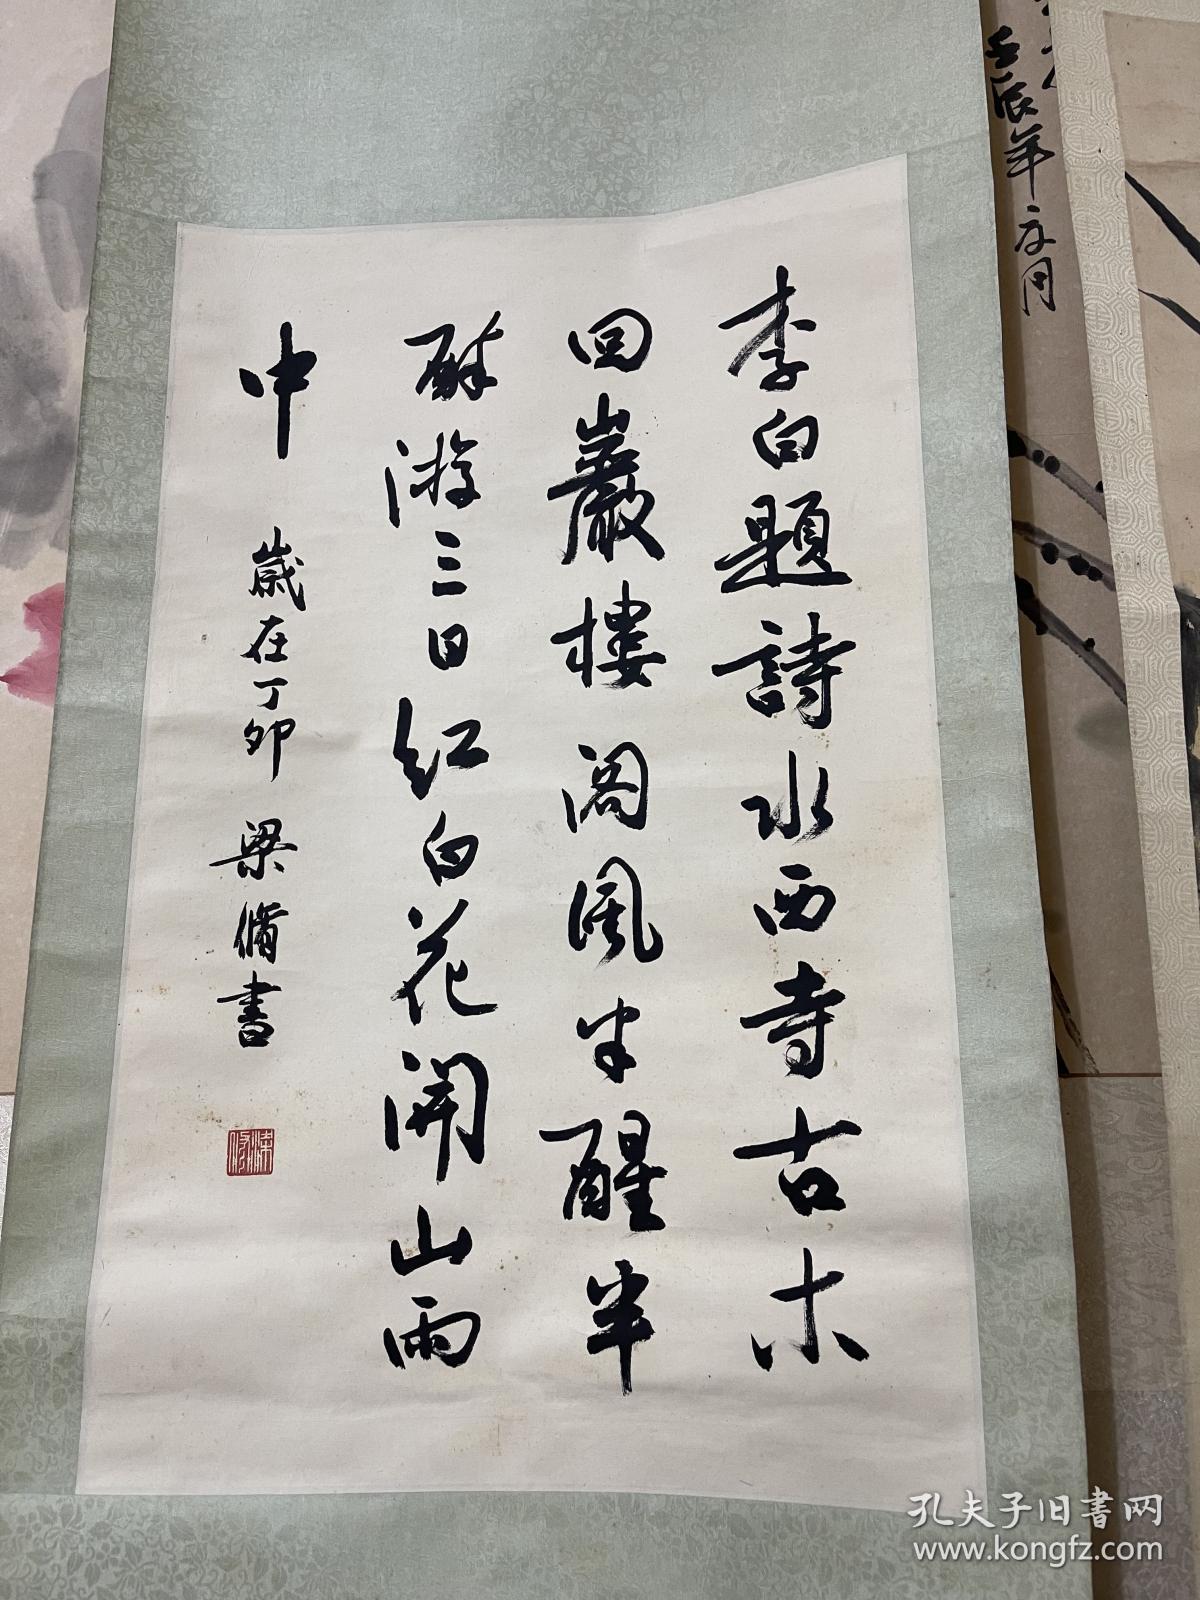 李白題詩水西寺古木
回巖樓阁風半醒半
醉游三日红白花開山雨
中
歲在丁卯 梁脩書
壬辰年六月
孔夫子旧書网
www.kongfz.com